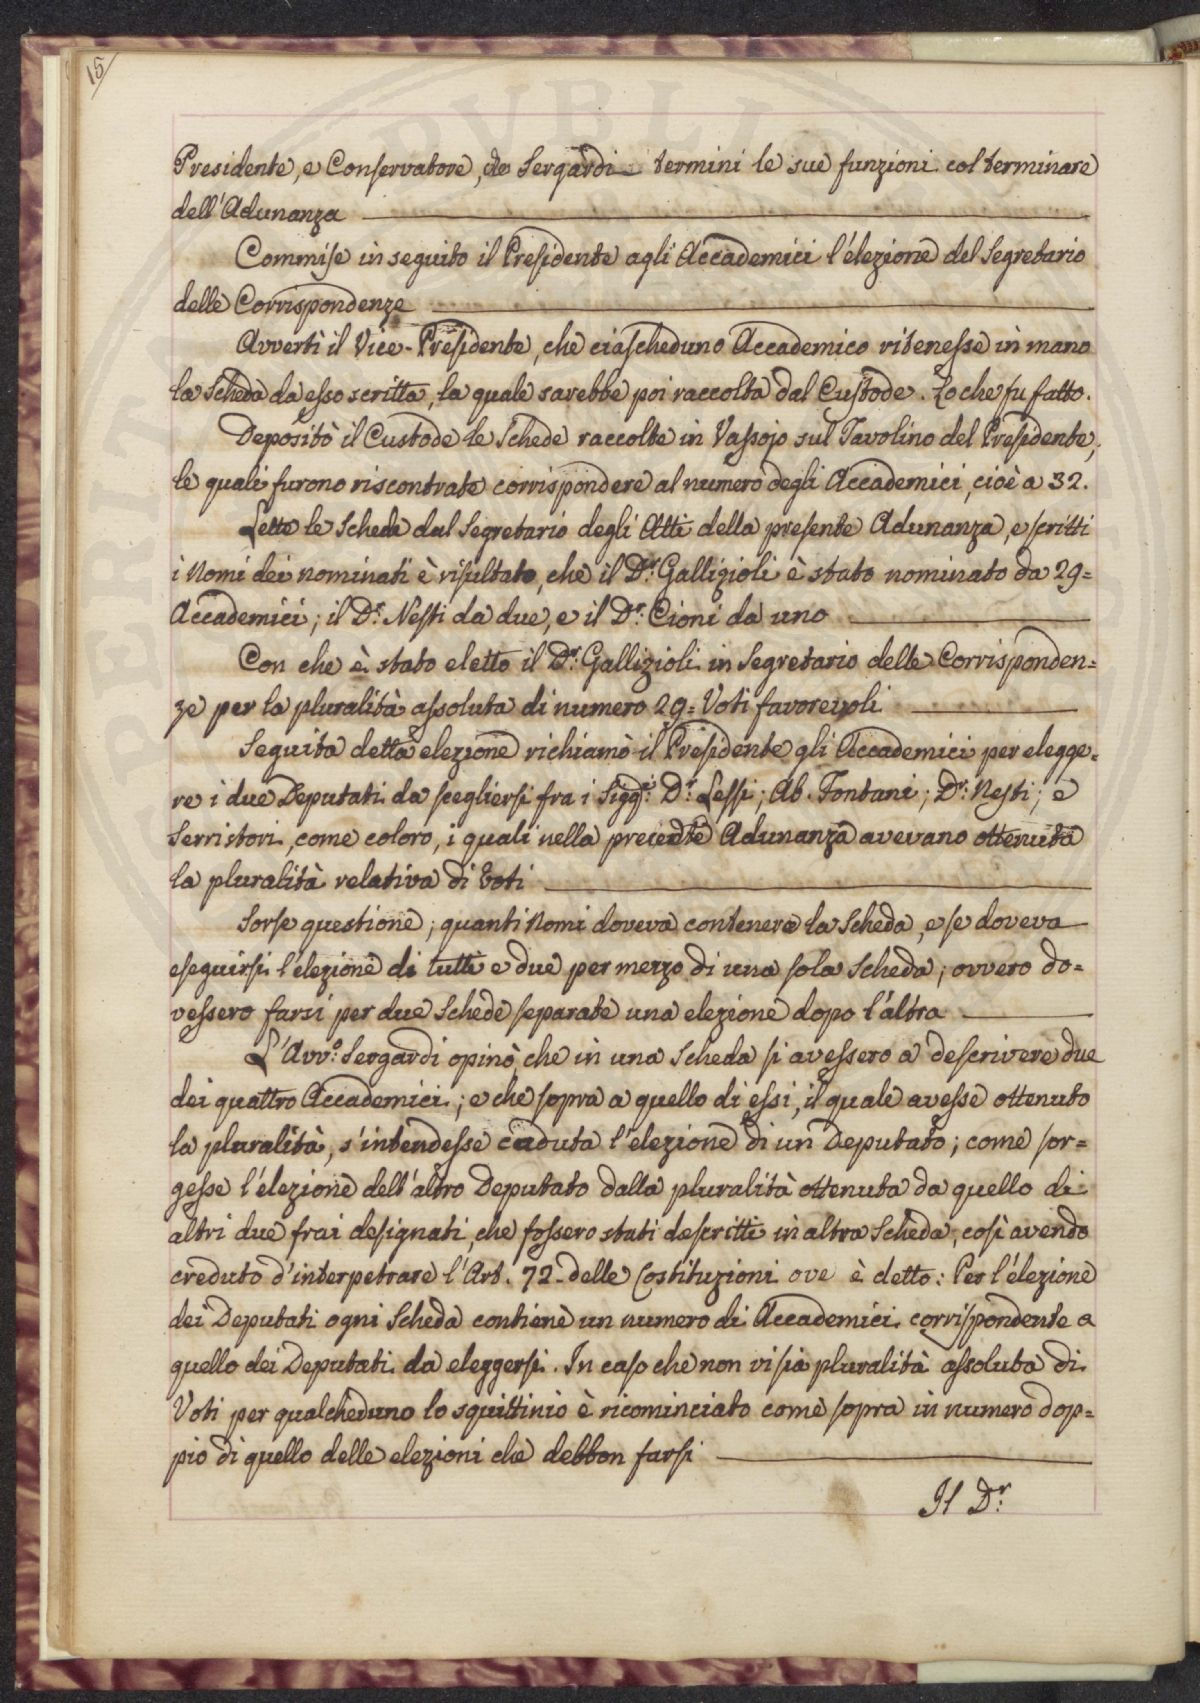 15
Presidente, e Conservatore, de Sergardi termini le sue funzioni col terminare
dell'Adunanza
Commise in seguito il Presidente agli Accademici l'elezione del Segretario
delle Corrispondenze
Avvertì il Vice-Presidente, che ciascheduno Accademico ritenesse in mano
la Scheda da esso scritta, la quale sarebbe poi raccolta dal Custode. Lo che fu fatto.
Depositò il Custode le Schede raccolte in Vassojo sul Tavolino del Presidente,
le quali furono riscontrate corrispondere al numero degli Accademici, cioè a 32.
Lette le Schede dal Segretario degli Atti della presente Adunanza, e scritti
i Nomi dei nominati è risultato, che il Dr. Gallizioli è stato nominato da 29=
Accademici; il Dr. Nesti da due, e il Dr. Cioni da uno
Con che è stato eletto il Dr. Gallizioli in Segretario delle Corrisponden=
ze per la pluralità assoluta di numero 29= Voti favorevoli
Seguita detta elezione richiamò il Presidente gli Accademici per elegge=
re i due Deputati da scegliersi fra i Sigg:ri Dr. Lessi; Ab. Fontani; Dr. Nesti; e
Serristori, come coloro, i quali nella precedte Adunanza avevano ottenuta
la pluralità relativa di Voti
Sorse questione; quanti Nomi doveva contenere la Scheda, e se doveva
eseguirsi l'elezione di tutti e due per mezzo di una sola Scheda; ovvero do=
vessero farsi per due Schede separate una elezione dopo l'altra
L'Avv.o Sergardi opinò, che in una Scheda si avessero a descrivere due
dei quattro Accademici; e che sopra a quello di essi, il quale avesse ottenuto
la pluralità, s'intendesse caduta l'elezione di un Deputato; come sor=
gesse l'elezione dell'altro Deputato dalla pluralità ottenuta da quello di
altri due frai designati, che fossero stati descritti in altra Scheda, così avendo
creduto d'interpetrare l'Art. 72- delle Costituzioni ove è detto: Per l'elezione
dei Deputati ogni Scheda contiene un numero di Accademici corrispondente a
quello dei Deputati da eleggersi. In caso che non vi sia pluralità assoluta di
Voti per qualcheduno lo squittinio è ricominciato come sopra in numero dop=
pio di quello delle elezioni che debbon farsi
Il Dr.